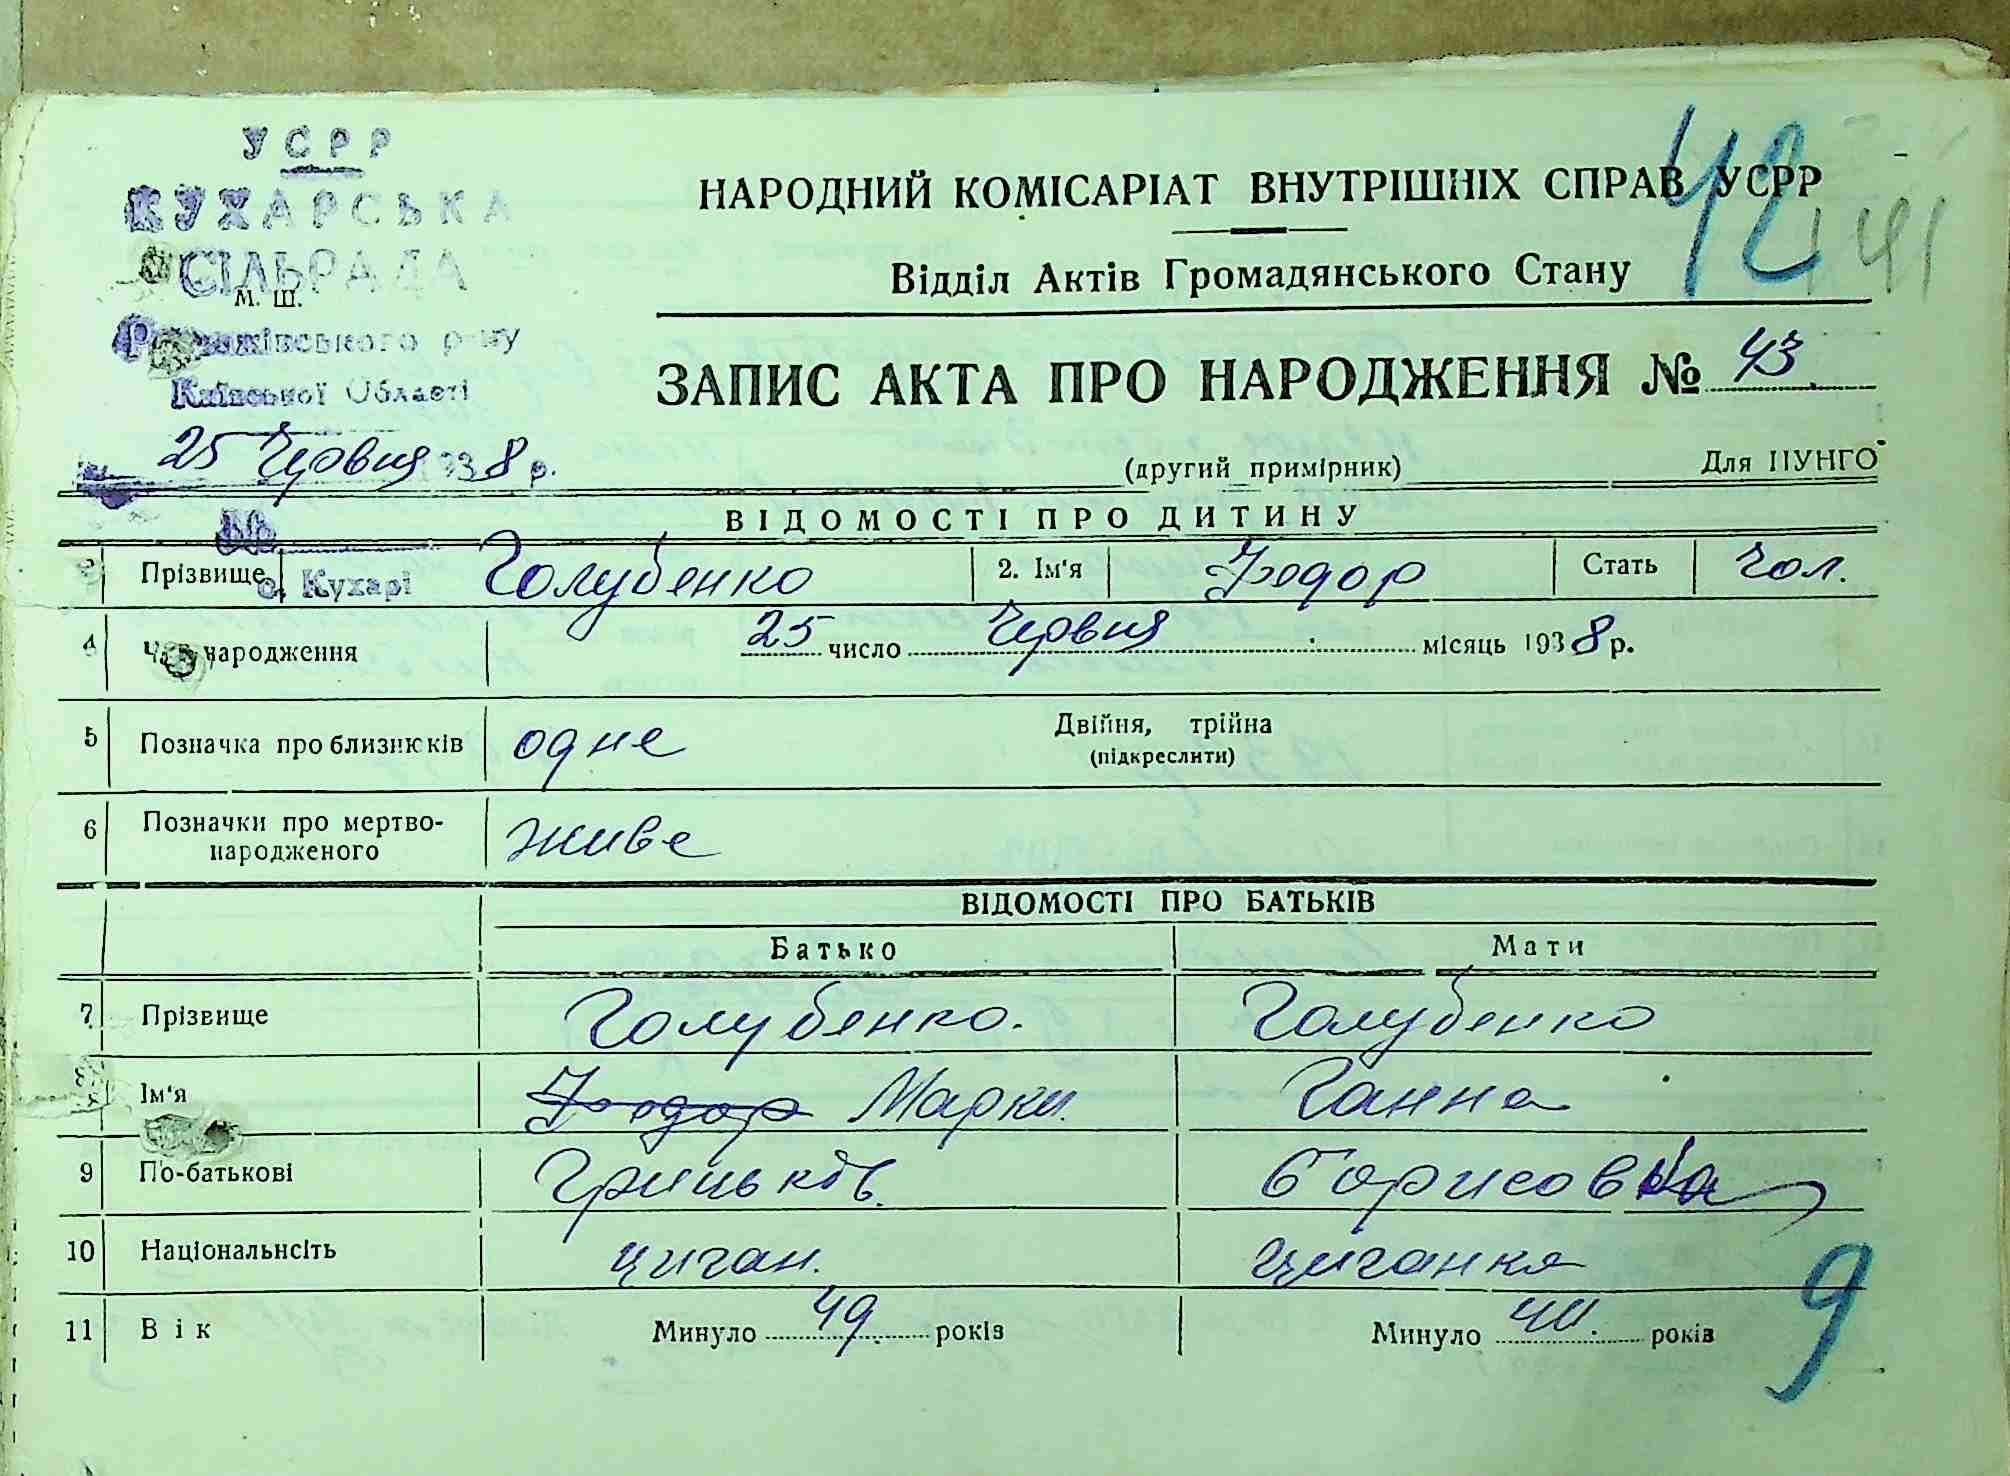 УСРР
КУХАРСЬКА
СІЛЬРАДА
М. Ш.
Розважівського р-ну
Київської Області
25 Червня 1938 р.
№
с. Кухарі
42
41
НАРОДНИЙ КОМІСАРІАТ ВНУТРІШНІХ СПРАВ УСРР
Відділ Актів Громадянського Стану
ЗАПИС АКТА ПРО НАРОДЖЕННЯ № 43.
(другий примірник) Для ЦУНГО
ВІДОМОСТІ ПРО ДИТИНУ
Прізвище Голубенко 2. Ім'я Федор Стать чол.
4 Час народження 25 число Червня місяць 1938 р.
5 Позначка про близнюків одне Двійня, трійна
(підкреслити)
6 Позначки про мертво-
народженого живе
ВІДОМОСТІ ПРО БАТЬКІВ
Батько Мати
7 Прізвище Голубенко. Голубенко
8 Ім'я Федор Марки. Ганна
9 По-батькові Гриньков. Борисовна
10 Національнсіть циган. циганка
11 Вік Минуло 49 років Минуло років
9